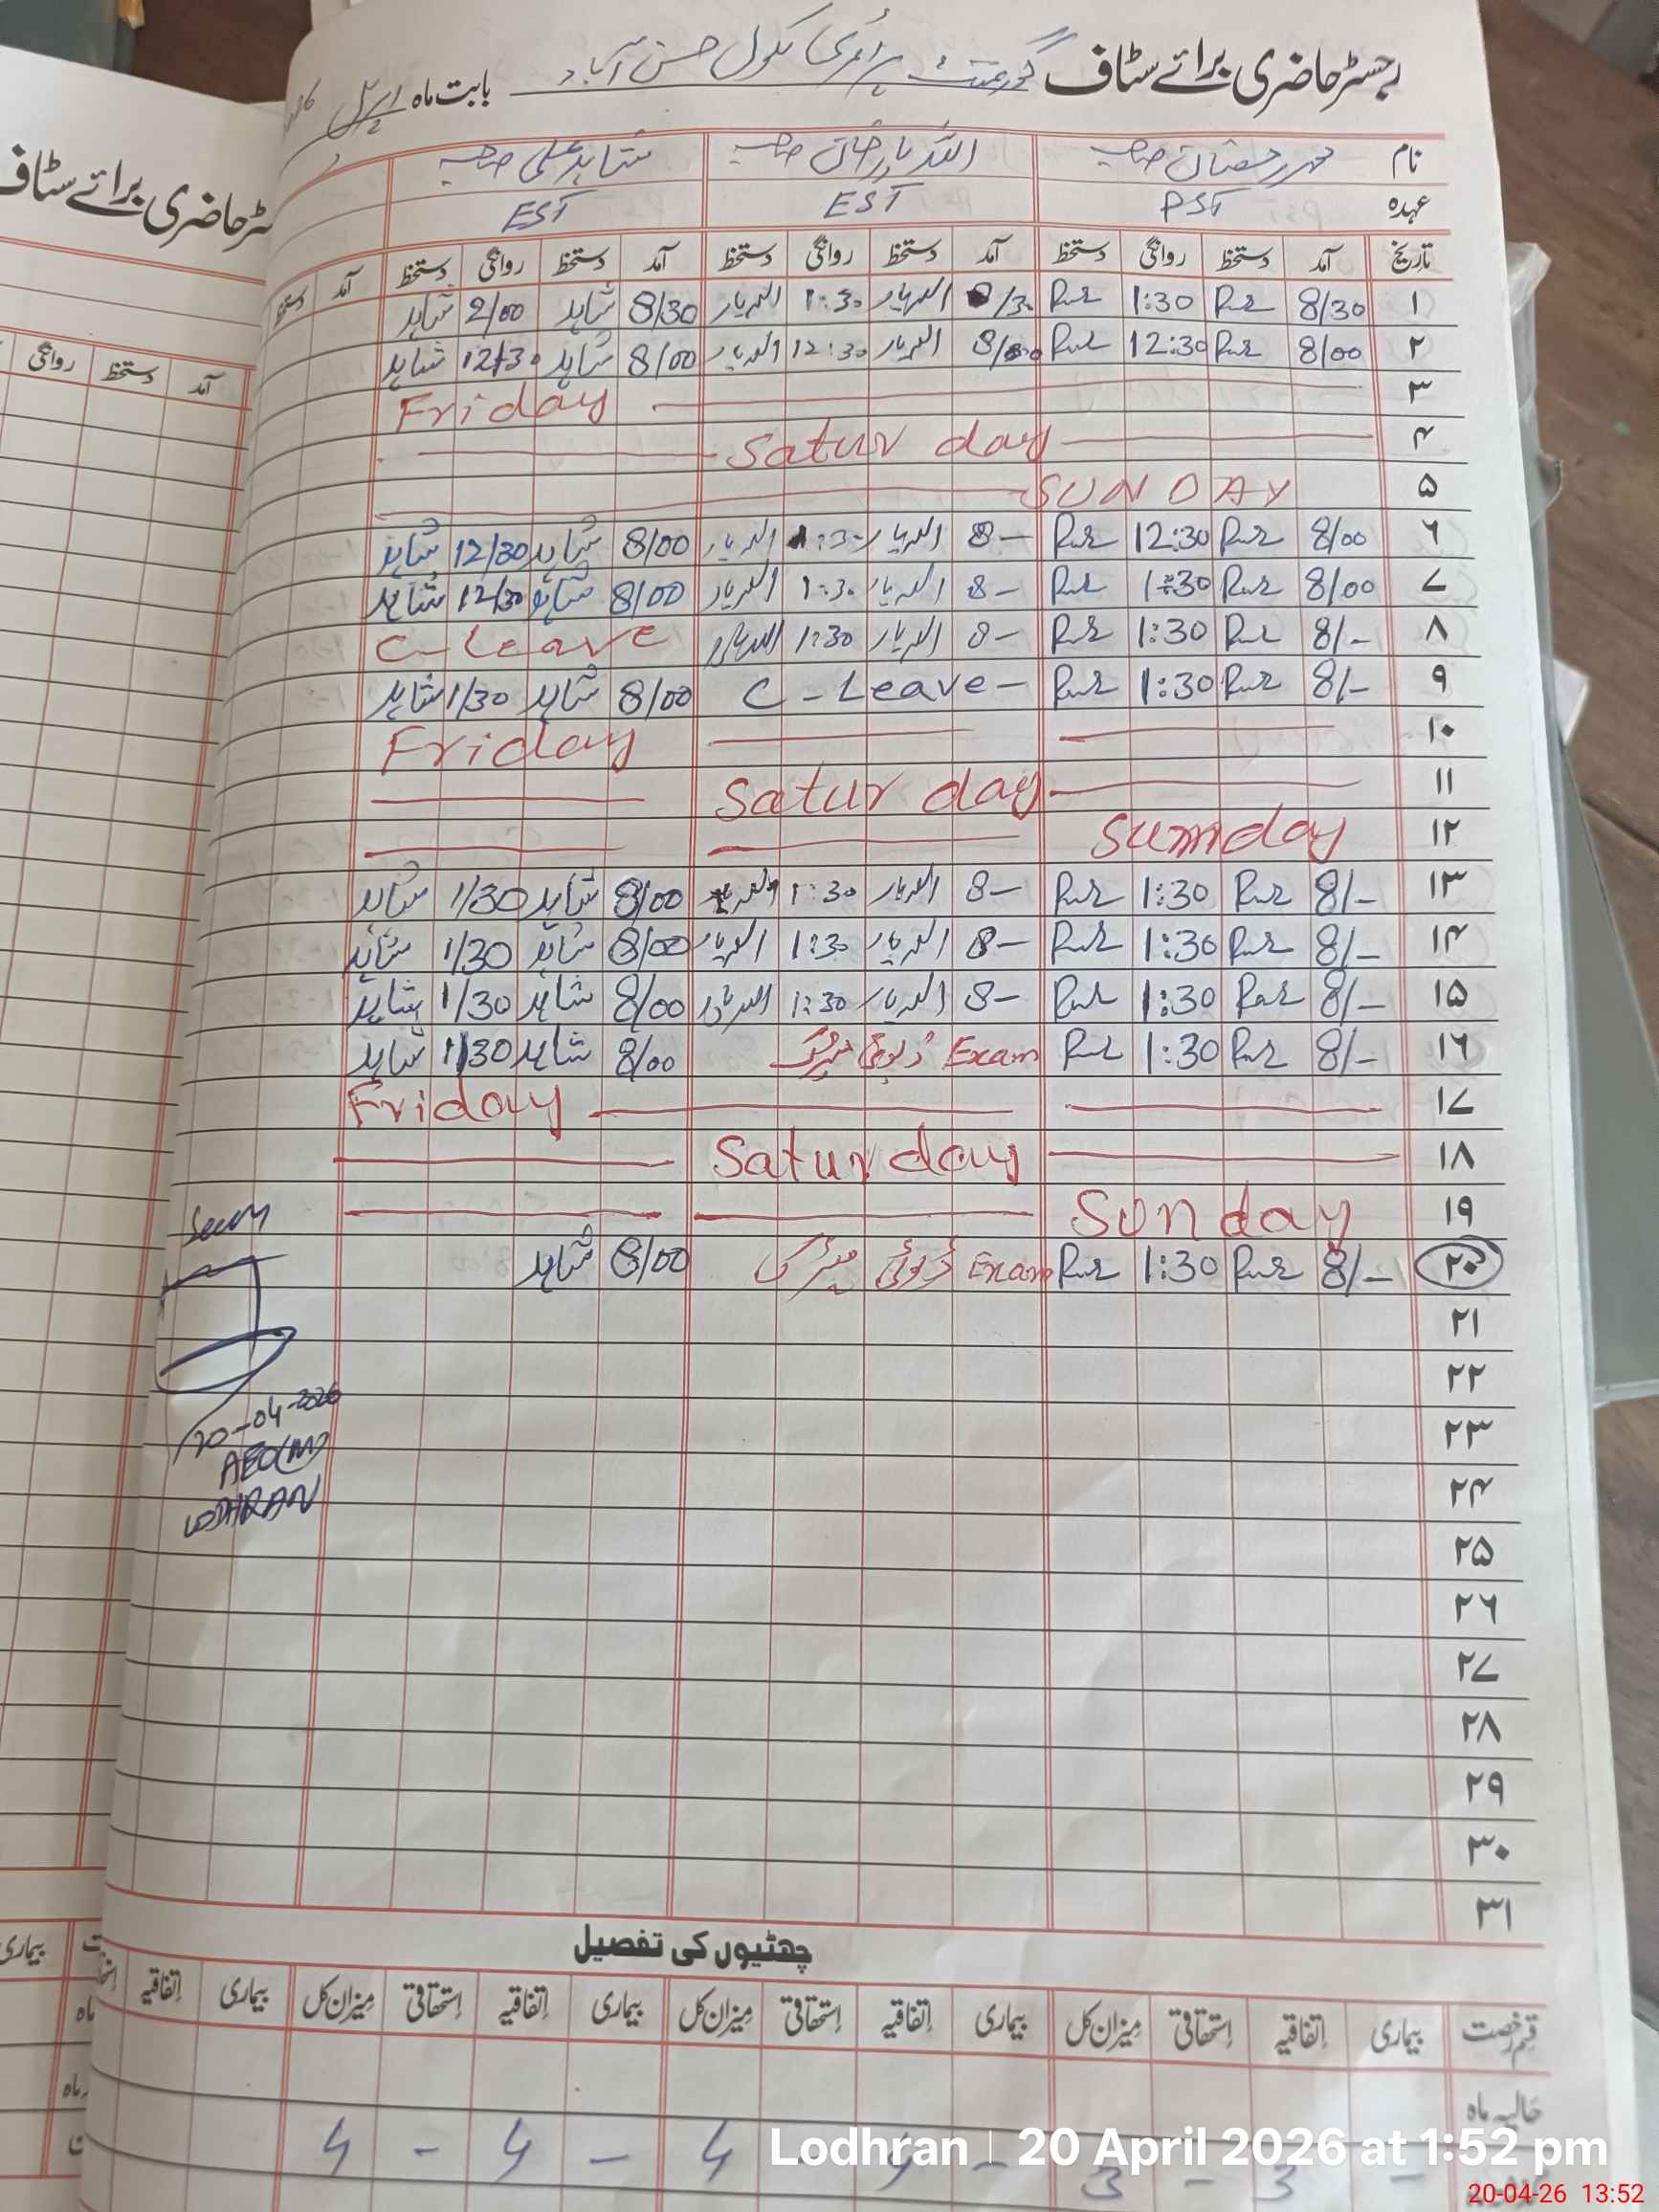 رجسٹر حاضری برائے سٹاف گورنمنٹ پرائمری سکول حسن آباد بابت ماہ اپریل
نام محمد رمضان صاحب اللہ یار خان صاحب شاہد علی صاحب
عہدہ PST EST EST
تاریخ آمد دستخط روانگی دستخط آمد دستخط روانگی دستخط آمد دستخط روانگی دستخط آمد دستخط
۱ 8/30 1:30 8/30 اللہ یار 1:30 اللہ یار 8/30 شاہد 2/00 شاہد
۲ 8/00 12:30 اللہ یار 12:30 اللہ یار 8/00 شاہد 12/30 شاہد
۳ Friday
۴ Saturday
۵ SUNDAY
۶ 8/00 12:30 8 – اللہ یار 1:30 اللہ یار 8/00 شاہد 12/30 شاہد
۷ 8/00 1:30 8 – اللہ یار 1:30 اللہ یار 8/00 شاہد 12/30 شاہد
۸ 8/– 1:30 8 – اللہ یار 1:30 اللہ یار C – Leave
۹ 8/– 1:30 C – Leave – 8/00 شاہد 1/30 شاہد
۱۰ Friday
۱۱ Saturday
۱۲ Sumnday
۱۳ 8/– 1:30 8 – اللہ یار 1:30 اللہ یار 8/00 شاہد 1/30 شاہد
۱۴ 8/– 1:30 8 – اللہ یار 1:30 اللہ یار 8/00 شاہد 1/30 شاہد
۱۵ 8/– 1:30 8 – اللہ یار 1:30 اللہ یار 8/00 شاہد 1/30 شاہد
۱۶ 8/– 1:30 Exam ڈیوٹی میٹرک 8/00 شاہد 1/30 شاہد
۱۷ Friday
۱۸ Saturday
۱۹ Sunday
۲۰ 8/– 1:30 Exam ڈیوٹی میٹرک 8/00 شاہد
۲۱
۲۲
۲۳
۲۴
۲۵
۲۶
۲۷
۲۸
۲۹
۳۰
۳۱
Seen
20-04-2026
AEO(M)
LODHRAN
چھٹیوں کی تفصیل
قسم رخصت بیماری اتفاقیہ استحقاقی میزان کل بیماری اتفاقیہ استحقاقی میزان کل بیماری اتفاقیہ استحقاقی میزان کل بیماری اتفاقیہ
حالیہ ماہ
– 3 – 3 – 4 – 4 – 4 – 4
دستخط روانگی
آمد دستخط روانگی
بیماری
Lodhran | 20 April 2026 at 1:52 pm
20-04-26 13:52